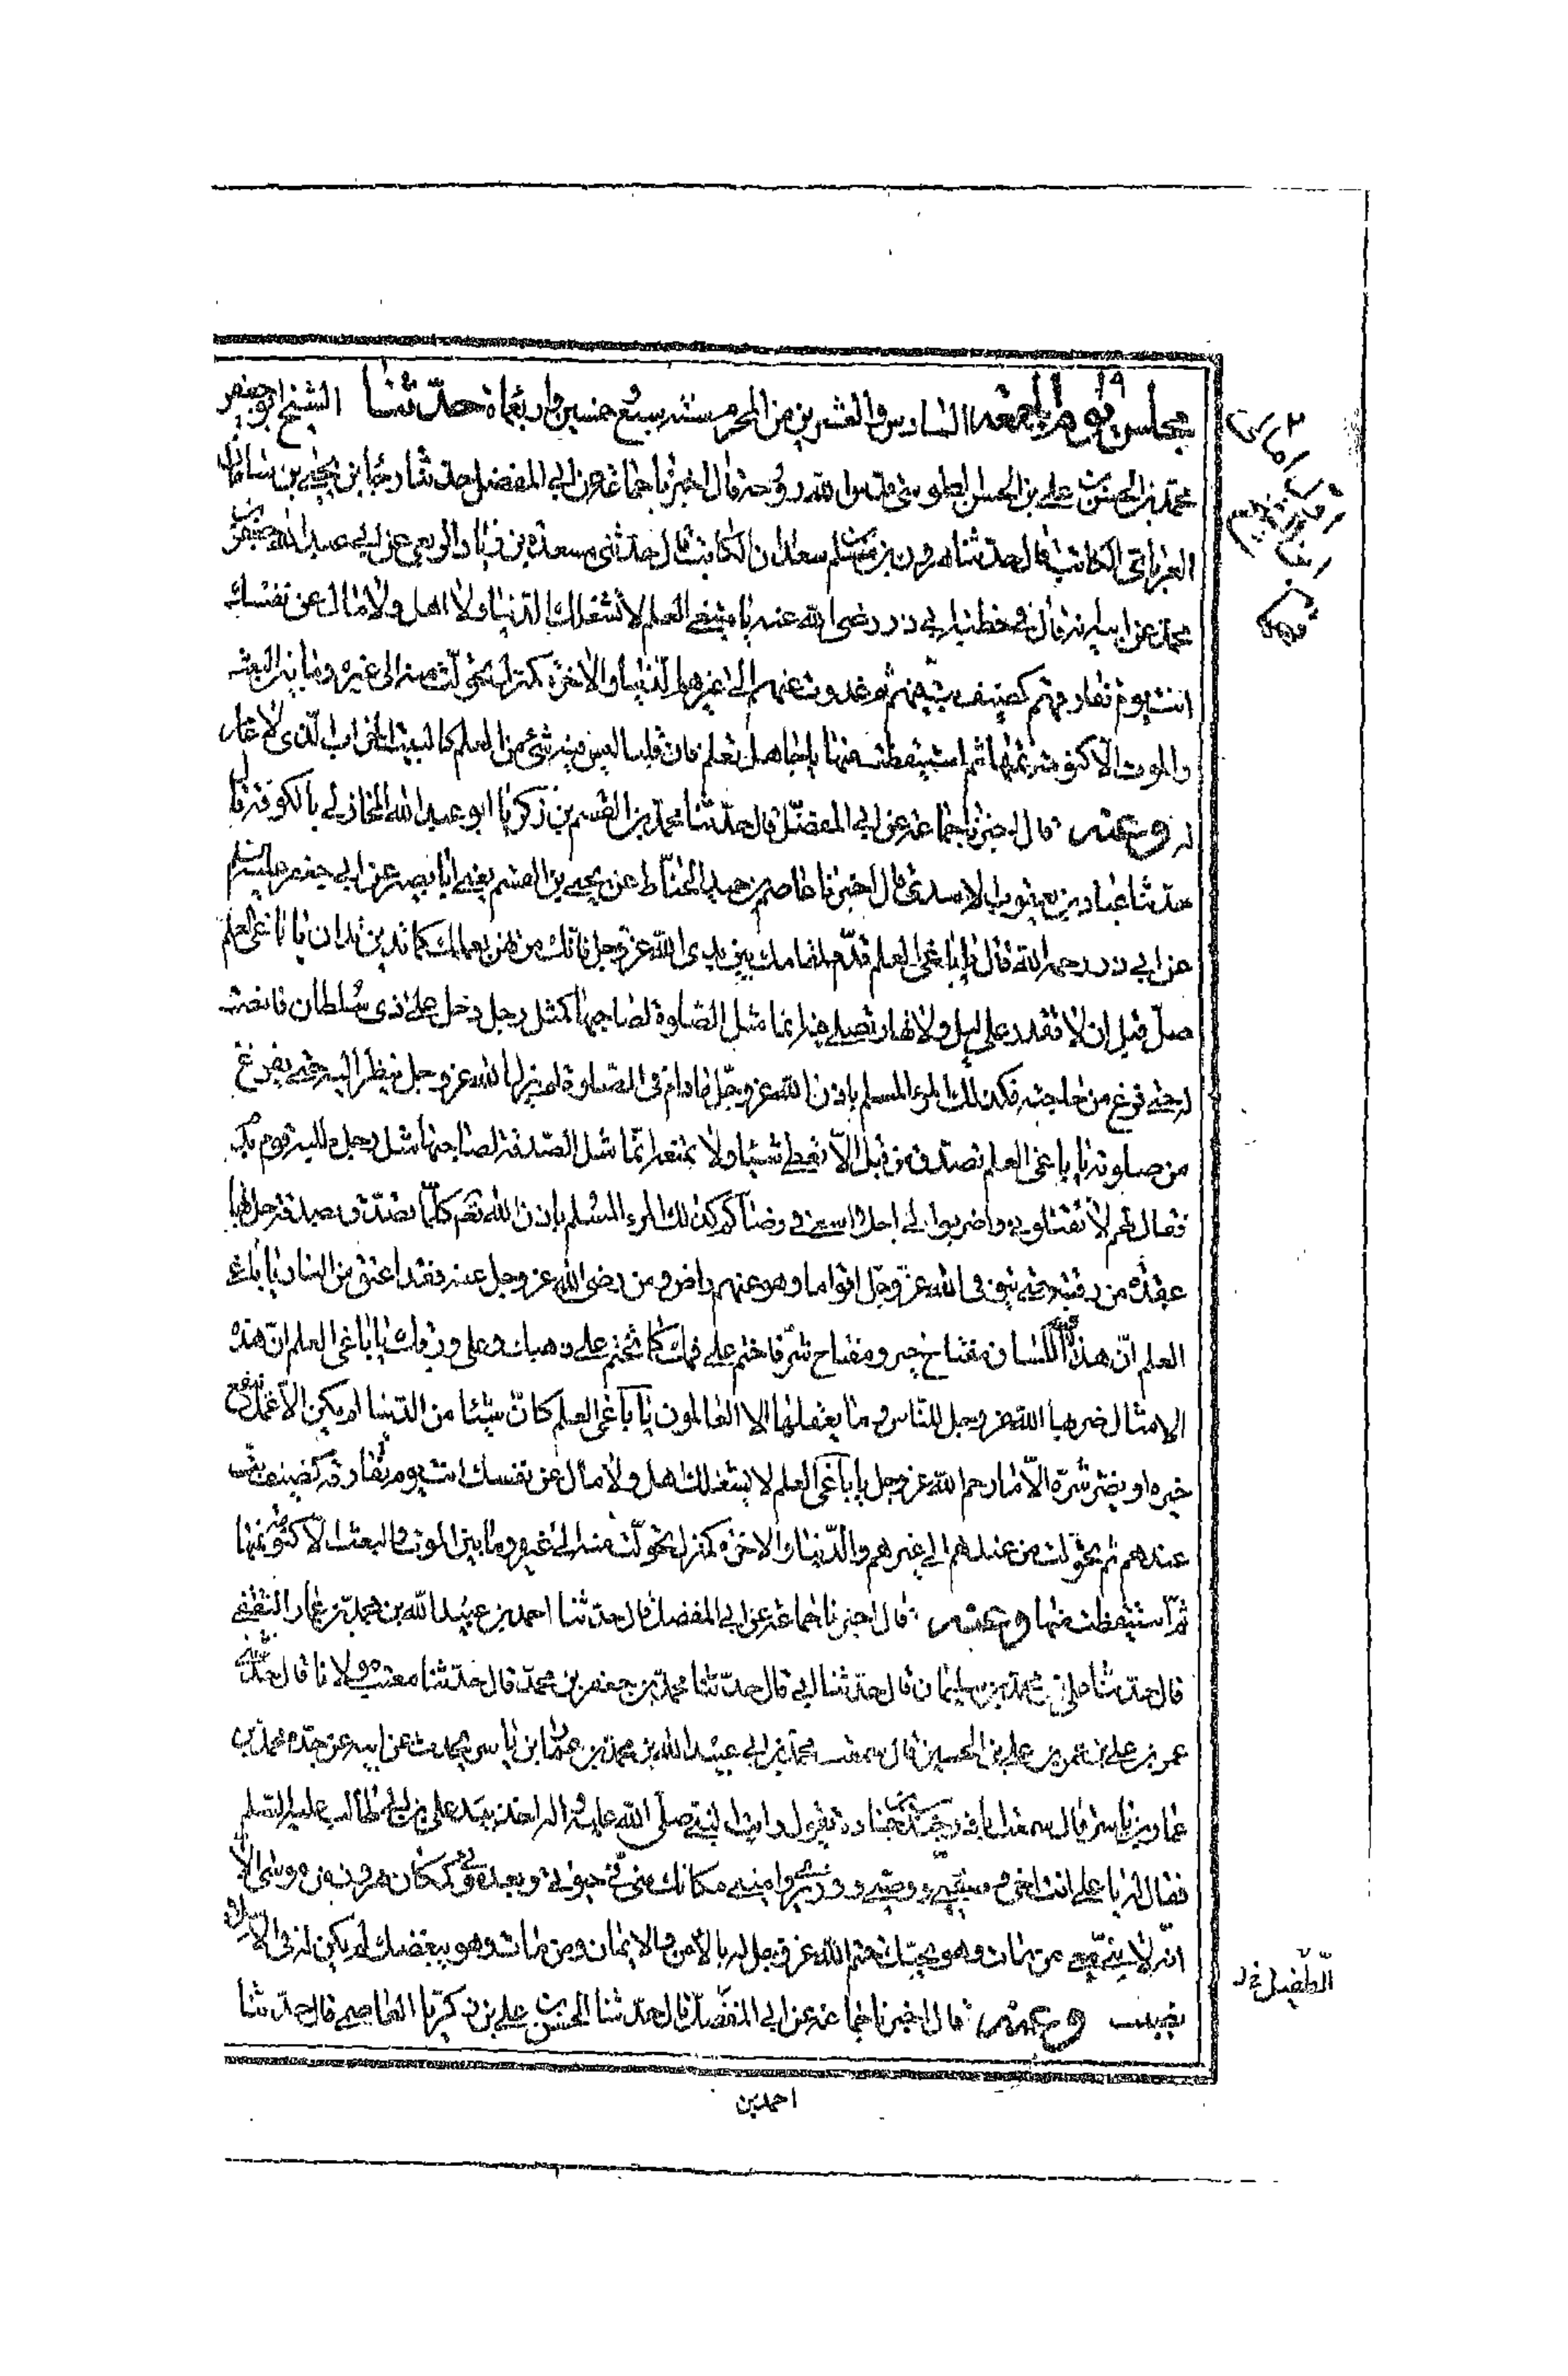 مجلس يوم الجمعة السادس والعشرين من المحرم سنة سبع خمسين واربعماة حدّثنا الشيخ ابو جعفر
محمّد بن الحسن بن علي بن الحسن الطوسى قدّس الله روحه قال اخبرنا جماعة عن ابي المفضل حدثنا رجا بن يحيى بن سامان
العبرتائى الكاتب قال حدثنا هرون بن مسلم بن سعدان الكاتب قال حدثنى مسعدة بن زياد الربعي عن ابي عبد الله جعفر بن
محمد عن ابيه انه قال في خطبة ابي ذر رضى الله عنه يا مبتغي العلم لا تشغلك الدنيا ولا اهل ولا مال عن نفسك
انت يوم تفارقهم كضيف بتّ فيهم ثم غدوت عنهم الى غيرهم الدنيا والاخرة كمنزل تحوّلت منه الى غيره وما بين البعث
والموت الّا كنومة نمتها ثم استيقظت منها يا جاهل تعلم فان قلبا ليس فيه شئ من العلم كالبيت الخراب الّذى لا عامر
له وعنه قال اخبرنا جماعة عن ابي المفضّل قال حدّثنا محمّد بن القسم بن زكريا ابو عبد الله المحاربي بالكوفة قال
حدّثنا عباد بن يعقوب الاسدى قال اخبرنا عاصم بن حميد الحنّاط عن يحيى بن القسم يعني ابا بصير عن ابي جعفر عليه السلم
عن ابي ذر رحمه الله قال يا باغي العلم قدّم لمقامك بين يدى الله عزّوجل فانّك مرتهن بعملك كما تدين تدان يا باغي العلم
صلّ قبل ان لا تقدر على ليل ولا نهار تصلى فيه انما مثل الصّلوة لصاحبها كمثل رجل دخل على ذى سُلطان فانصت
له حتى فرغ من حاجته فكذلك المرء المسلم باذن الله عزوجلّ ما دام فى الصّلوة لم يزل الله عزوجل ينظر اليه حتى يفرغ
من صلوته يا باغي العلم تصدّق من قبل الّا تعطى شيئا ولا تمنعه انّما مثل الصّدقة لصاحبها مثل رجل طلبه قوم بدم
فقال لهم لا تقتلونى واضربوا لي اجلا اسعى فى رضاكم كذلك المرء المُسلم باذن الله تعم كلّما تصدّق بصدقة حل بها
عقدة من رقبته حتى يتوفى الله عزّوجلّ اقواما وهو عنهم راض ومن رضى الله عزوجل عنه فقد اعتق من النار يا باغي
العلم انّ هذا اللّسان مفتاح خير ومفتاح شرّ فاختم على فمك كما تختم على ذهبك وعلى ورقك يا باغي العلم ان هذه
الامثال ضربها الله عزوجل للنّاس وما يعقلها الا العالمون يا باغي العلم كانّ شيئا من الدّنيا لم يكن الّا عمل ينفع
خيره او يضرّ شرّه الّا ما رحم الله عزوجل يا باغي العلم لا يشغلك اهل ولا مال عن نفسك انت يوم تفارقهم كضيف بتّ
عندهم ثم تحوّلت من عندهم الى غيرهم والدّنيا والاخرة كمنزل تحوّلت منه الى غيره وما بين الموت والبعث الّا كنومة نمتها
ثمّ استيقظت منها وعنه قال اخبرنا جماعة عن ابي المفضل قال حدثنا احمد بن عبيد الله بن محمّد بن عمار الثقفى
قال حدثنا علي بن محمّد بن سليمان قال حدّثنا ابي قال حدّثنا محمّد بن جعفر بن محمّد قال حدّثنا معتب مولانا قال حدّثنى
عمر بن علي بن عمر بن علي بن الحسين قال سمعت محمّد بن ابي عبيد الله بن محمّد بن عمار بن ياسر يحدث عن ابيه عن جدّه محمّد بن
عمار بن ياسر قال سمعت ابا ذر جندب بن جنادة يقول رايت النبي صلّى الله عليه واله اخذ بيد علي بن ابي طالب عليه السّلم
فقال له يا علي انت اخى وصفيي ووصيّي ووزيرى واميني مكانك منى فى حيوتى وبعد موتى كمكان هرون من موسى الّا
انّه لا نبيّ معى من مات وهو يحبّك ختم الله عزوجل له بالامن والايمان ومن مات وهو يبغضك لم يكن له فى الاسلام
نصيب وعنه قال اخبرنا جماعة عن ابي المفضّل قال حدّثنا الحسن بن علي بن زكريا العاصمى قال حدّثنا
احمد بن